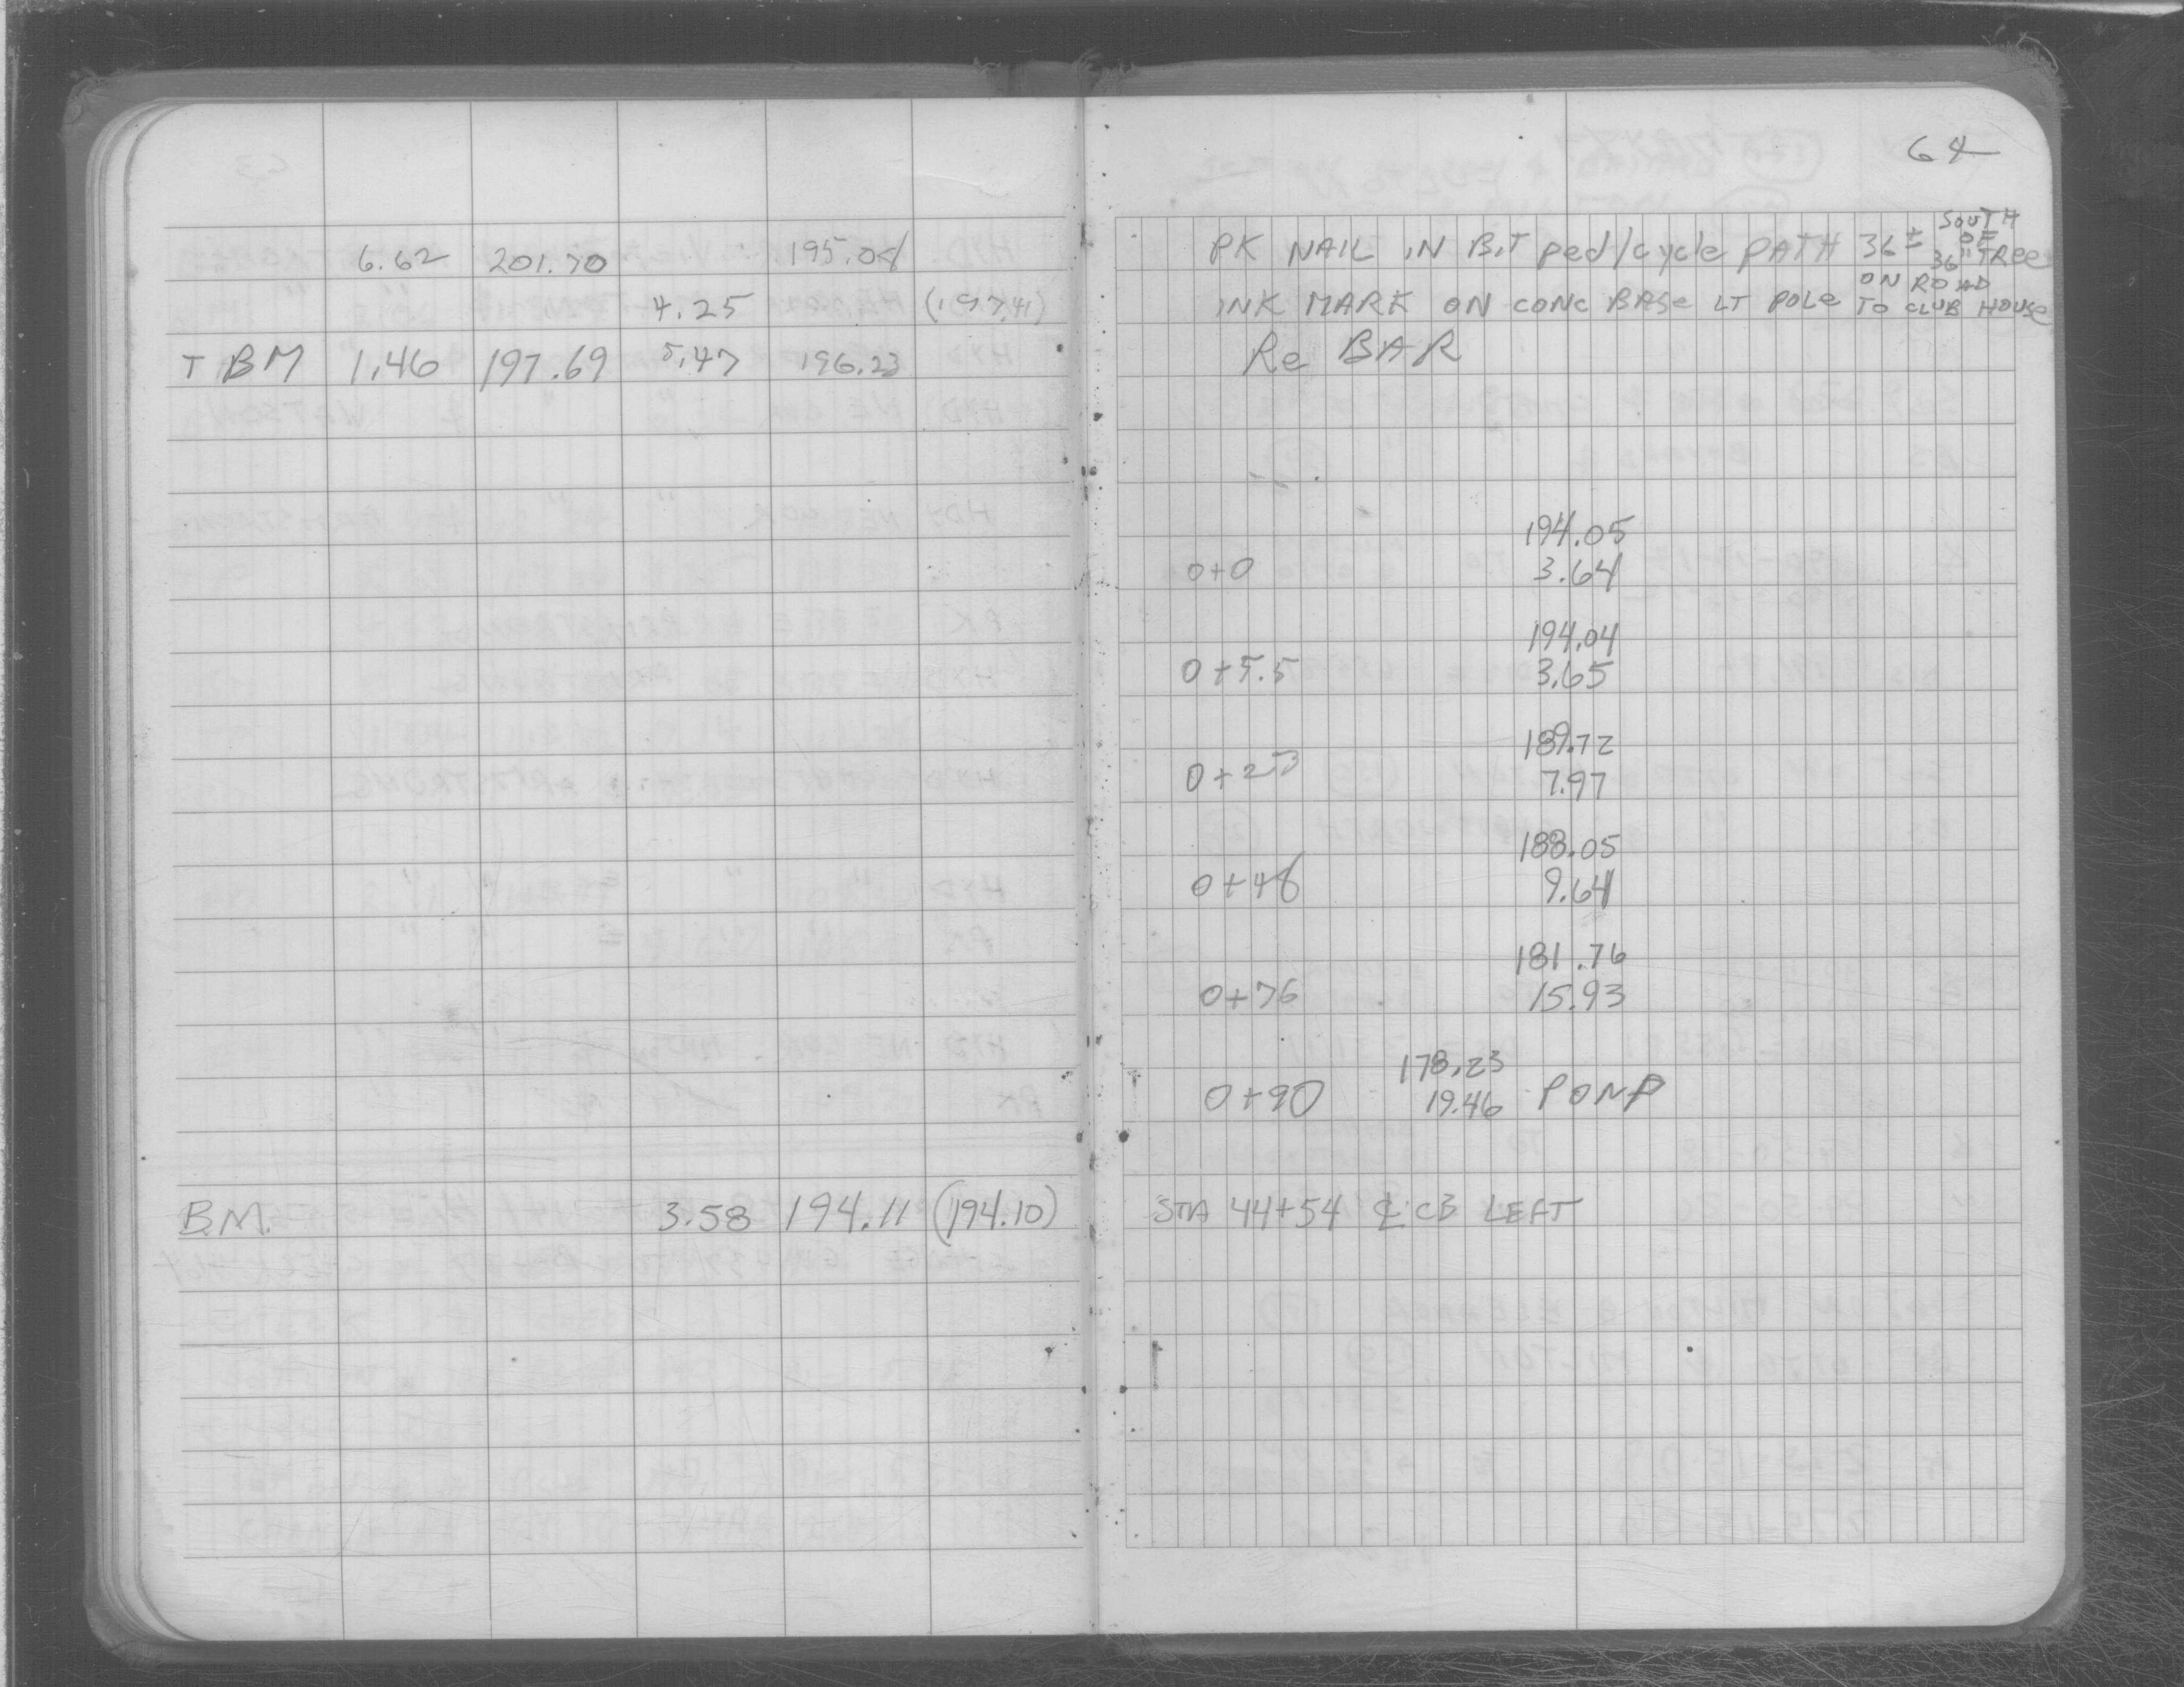 64
6.62 201.70 195.08 PK NAIL IN BIT ped/cycle PATH 36± SOUTH OF 36" TREE
4.25 (197.41) INK MARK ON CONC BASE LT POLE ON ROAD TO CLUB HOUSE
T BM 1.46 197.69 5.47 196.23 Re BAR
194.05
0+0 3.64
194.04
0+5.5 3.65
189.72
0+25 7.97
188.05
0+48 9.64
181.76
0+76 15.93
178.23
0+90 19.46 POND
B.M. 3.58 194.11 (194.10) STA 44+54 ℄ CB LEFT